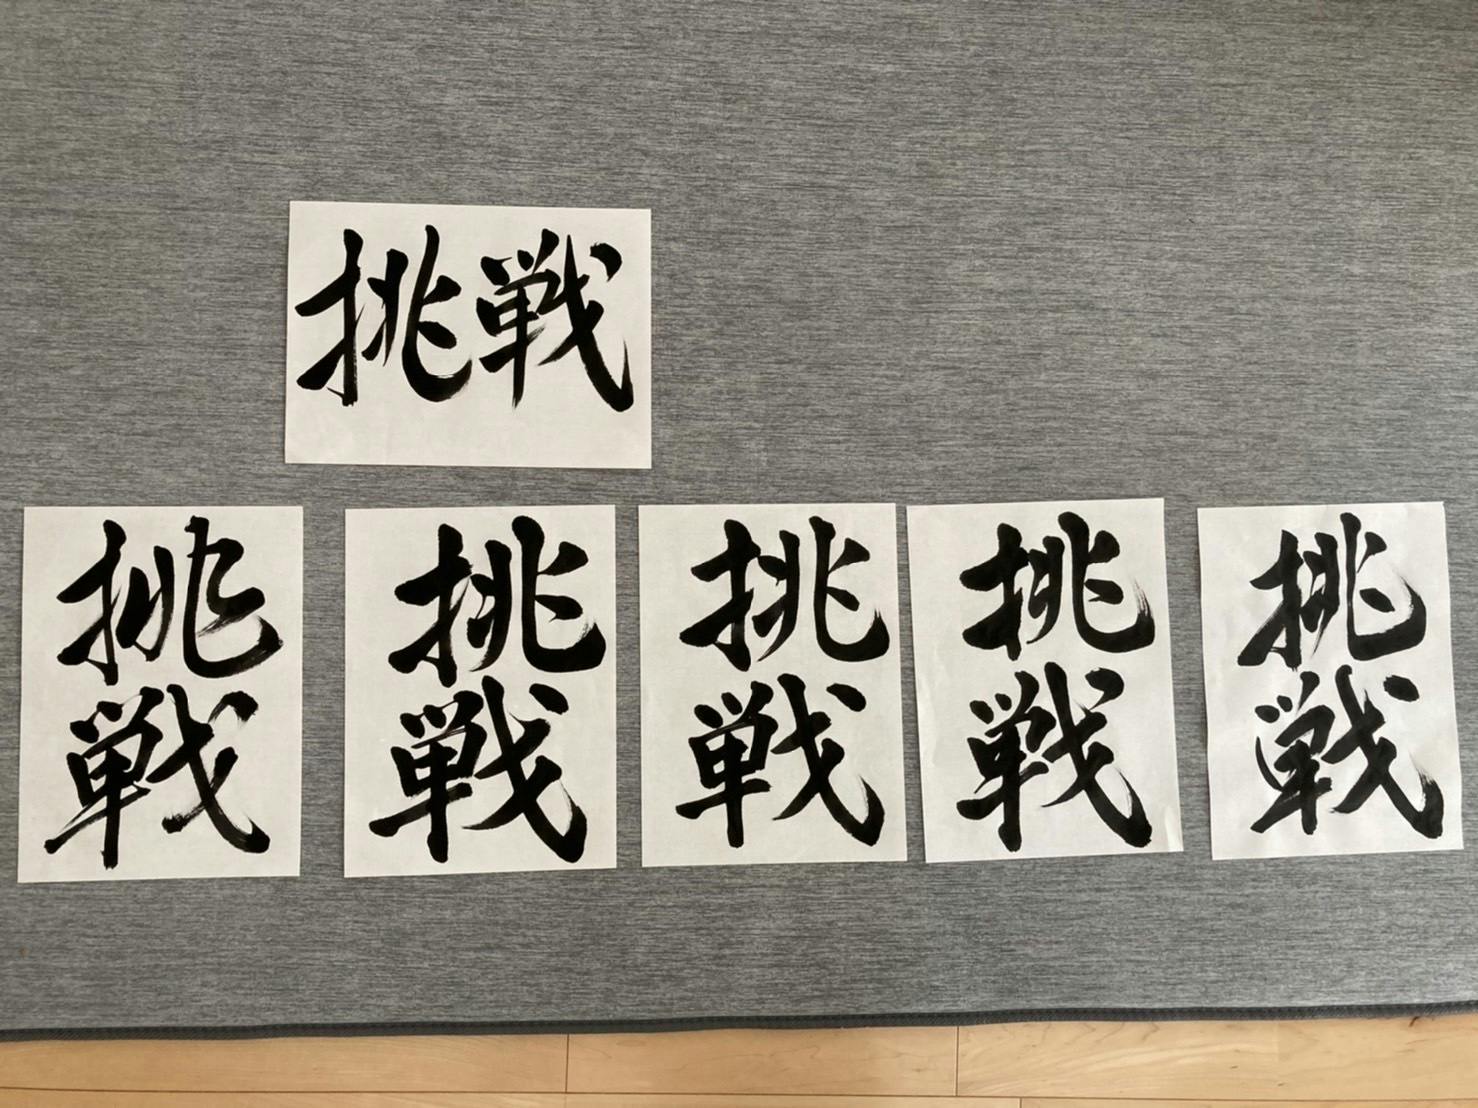 挑戦
挑戦
挑戦
挑戦
挑戦
挑戦